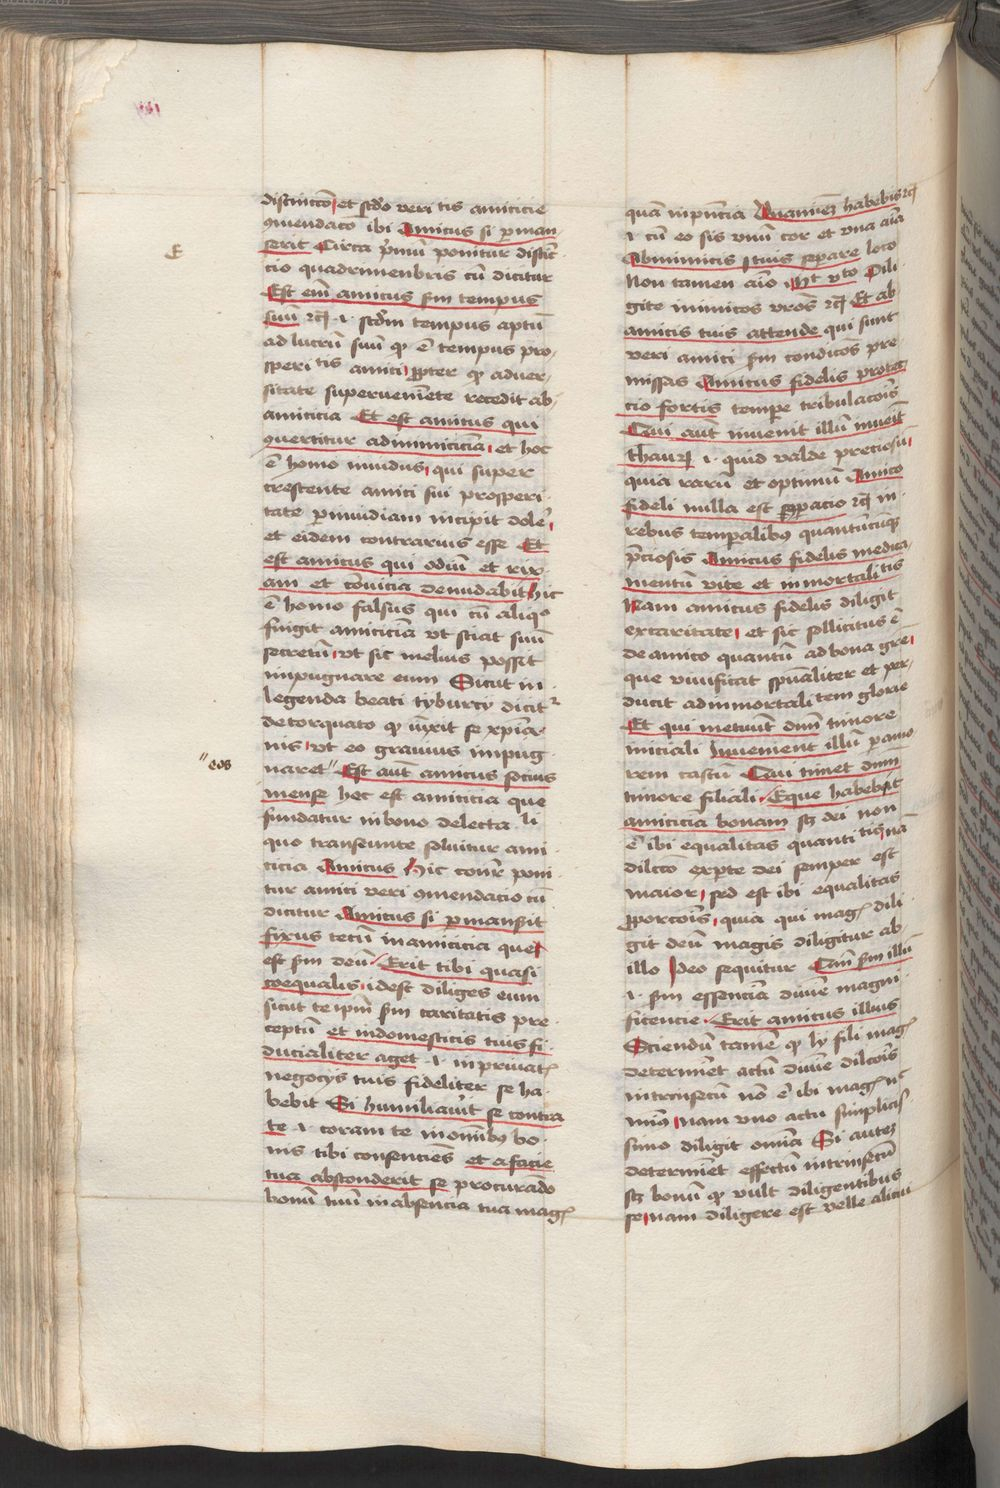 distinctō et scd̄o veri tis amicicie
ꝯmendacō ibi Amicus si ꝑman
serit Circa p̄mū ponitur distīc
cio quadrimenbris cū dicitur
Est em̄ amicus scd̄m tempus
suū ⁊c̄ .i. scd̄m tempus aptū
ad lucrū suū qꝫ ē tempus pro
speri tis amici ꝓpter qꝫ aduer
sitate superueniēte recedit ab
amicicia Et est amicus qui
ꝯuertitur ad inimiciciā et hoc
ē homo inuidus qui super
crescente amici sui prosperi
tate ꝑ inuidiam incipit dolē
et eidem contrarius esse Et
est amicus qui odiū et rix
am et cōuicia denudabit hic
ē homo falsus qui cū aliqo
fingit amiciciā vt sciat suū
secretū vt sic melius possit
impugnare eum Sicut in
legenda beati tyburcij dicit2
de torquato qꝫ finxit se xp̄ia
nis vt eo grauius impug
naret Est aūt amicus socius
mense hoc est amicicia que
fundatur in bono delecta li
quo transeunte soluitur ami
cicia Amicus Hic conr̄ poni
tur amici veri ꝯmendacio cū
dicitur Amicus si ꝑmanserit
fixus tecū in amicicia que
est scd̄m deū Erit tibi quasi
coequalis idest diliges eum
sicut te ip̄m scd̄m caritatis pre
ceptū et in domesticis tuis fi
ducialiter aget .i. in priuatꝭ
negocijs tuis fideliter se ha
bebit Si humiliau̅it se contra
te .i. coram te in om̄ibꝰ bo
nis tibi consenciēs et a facie
tua absconderit se procurādo
bonū tuū in absencia tua magꝭ
E
"eos
quā in pn̄cia Vnanimē habebis ⁊c̄
.i. cū eo sis vnū cor et vna aīa
Ab inimicis tuis separe loco
Non tamen aīo Mt vto Dili
gite inimicos vr̄os ⁊c̄ Et ab
amicis tuis attende qui sunt
veri amici scd̄m condicōs pre
missas Amicus fidelis protec
cio fortis tempe tribulacōis
Qui aūt inuenit illū inueīt
thaurꝫ .i. quid valde preciosū
quia rarū et optimū Amico
fideli nulla est ꝯparacio ⁊c̄ in
rebus temp̄alibꝰ quantūcūqꝫ
p̄ciosis Amicus fidelis medica
mentū vite et inmortali tis
Nam amicus fidelis diligit
ex caritate et sic sollicitus ē
de amico quantū ad bona grē
que viuificat spūaliter et per
ducit ad inmortali tem glorie
Et qui metuūt dn̄m timore
iniciali Inuenient illū ꝑ amo
rem castū Qui timet dn̄m
timore filiali Eque habebit
amiciciā bonam scꝫ dei non
ē ibi equalitas quanti tis nā
dilccō ex ꝑte dei semper est
maior sed est ibi equalitas
ꝓporcōis quia qui magꝭ dili
git deū magis diligitur ab
illo Ideo sequitur Qm̄ scd̄m illū
.i. scd̄m essenciā diuīe magni
ficencie Erit amicus illius
Sciendū tamē qꝫ ly sili magꝭ
determīet actū diuīe dilcōis
intrinsecū nō ē ibi magꝭ nͨ
minꝰ nam vno actu simplicis
simo diligit om̄ia Si autē
determīet effectū intrinsecū
scꝫ bonū qꝫ vult diligentibus
se nam diligere est velle alicui